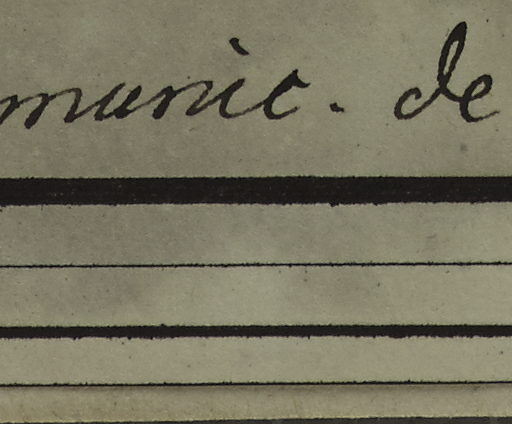 munic. de